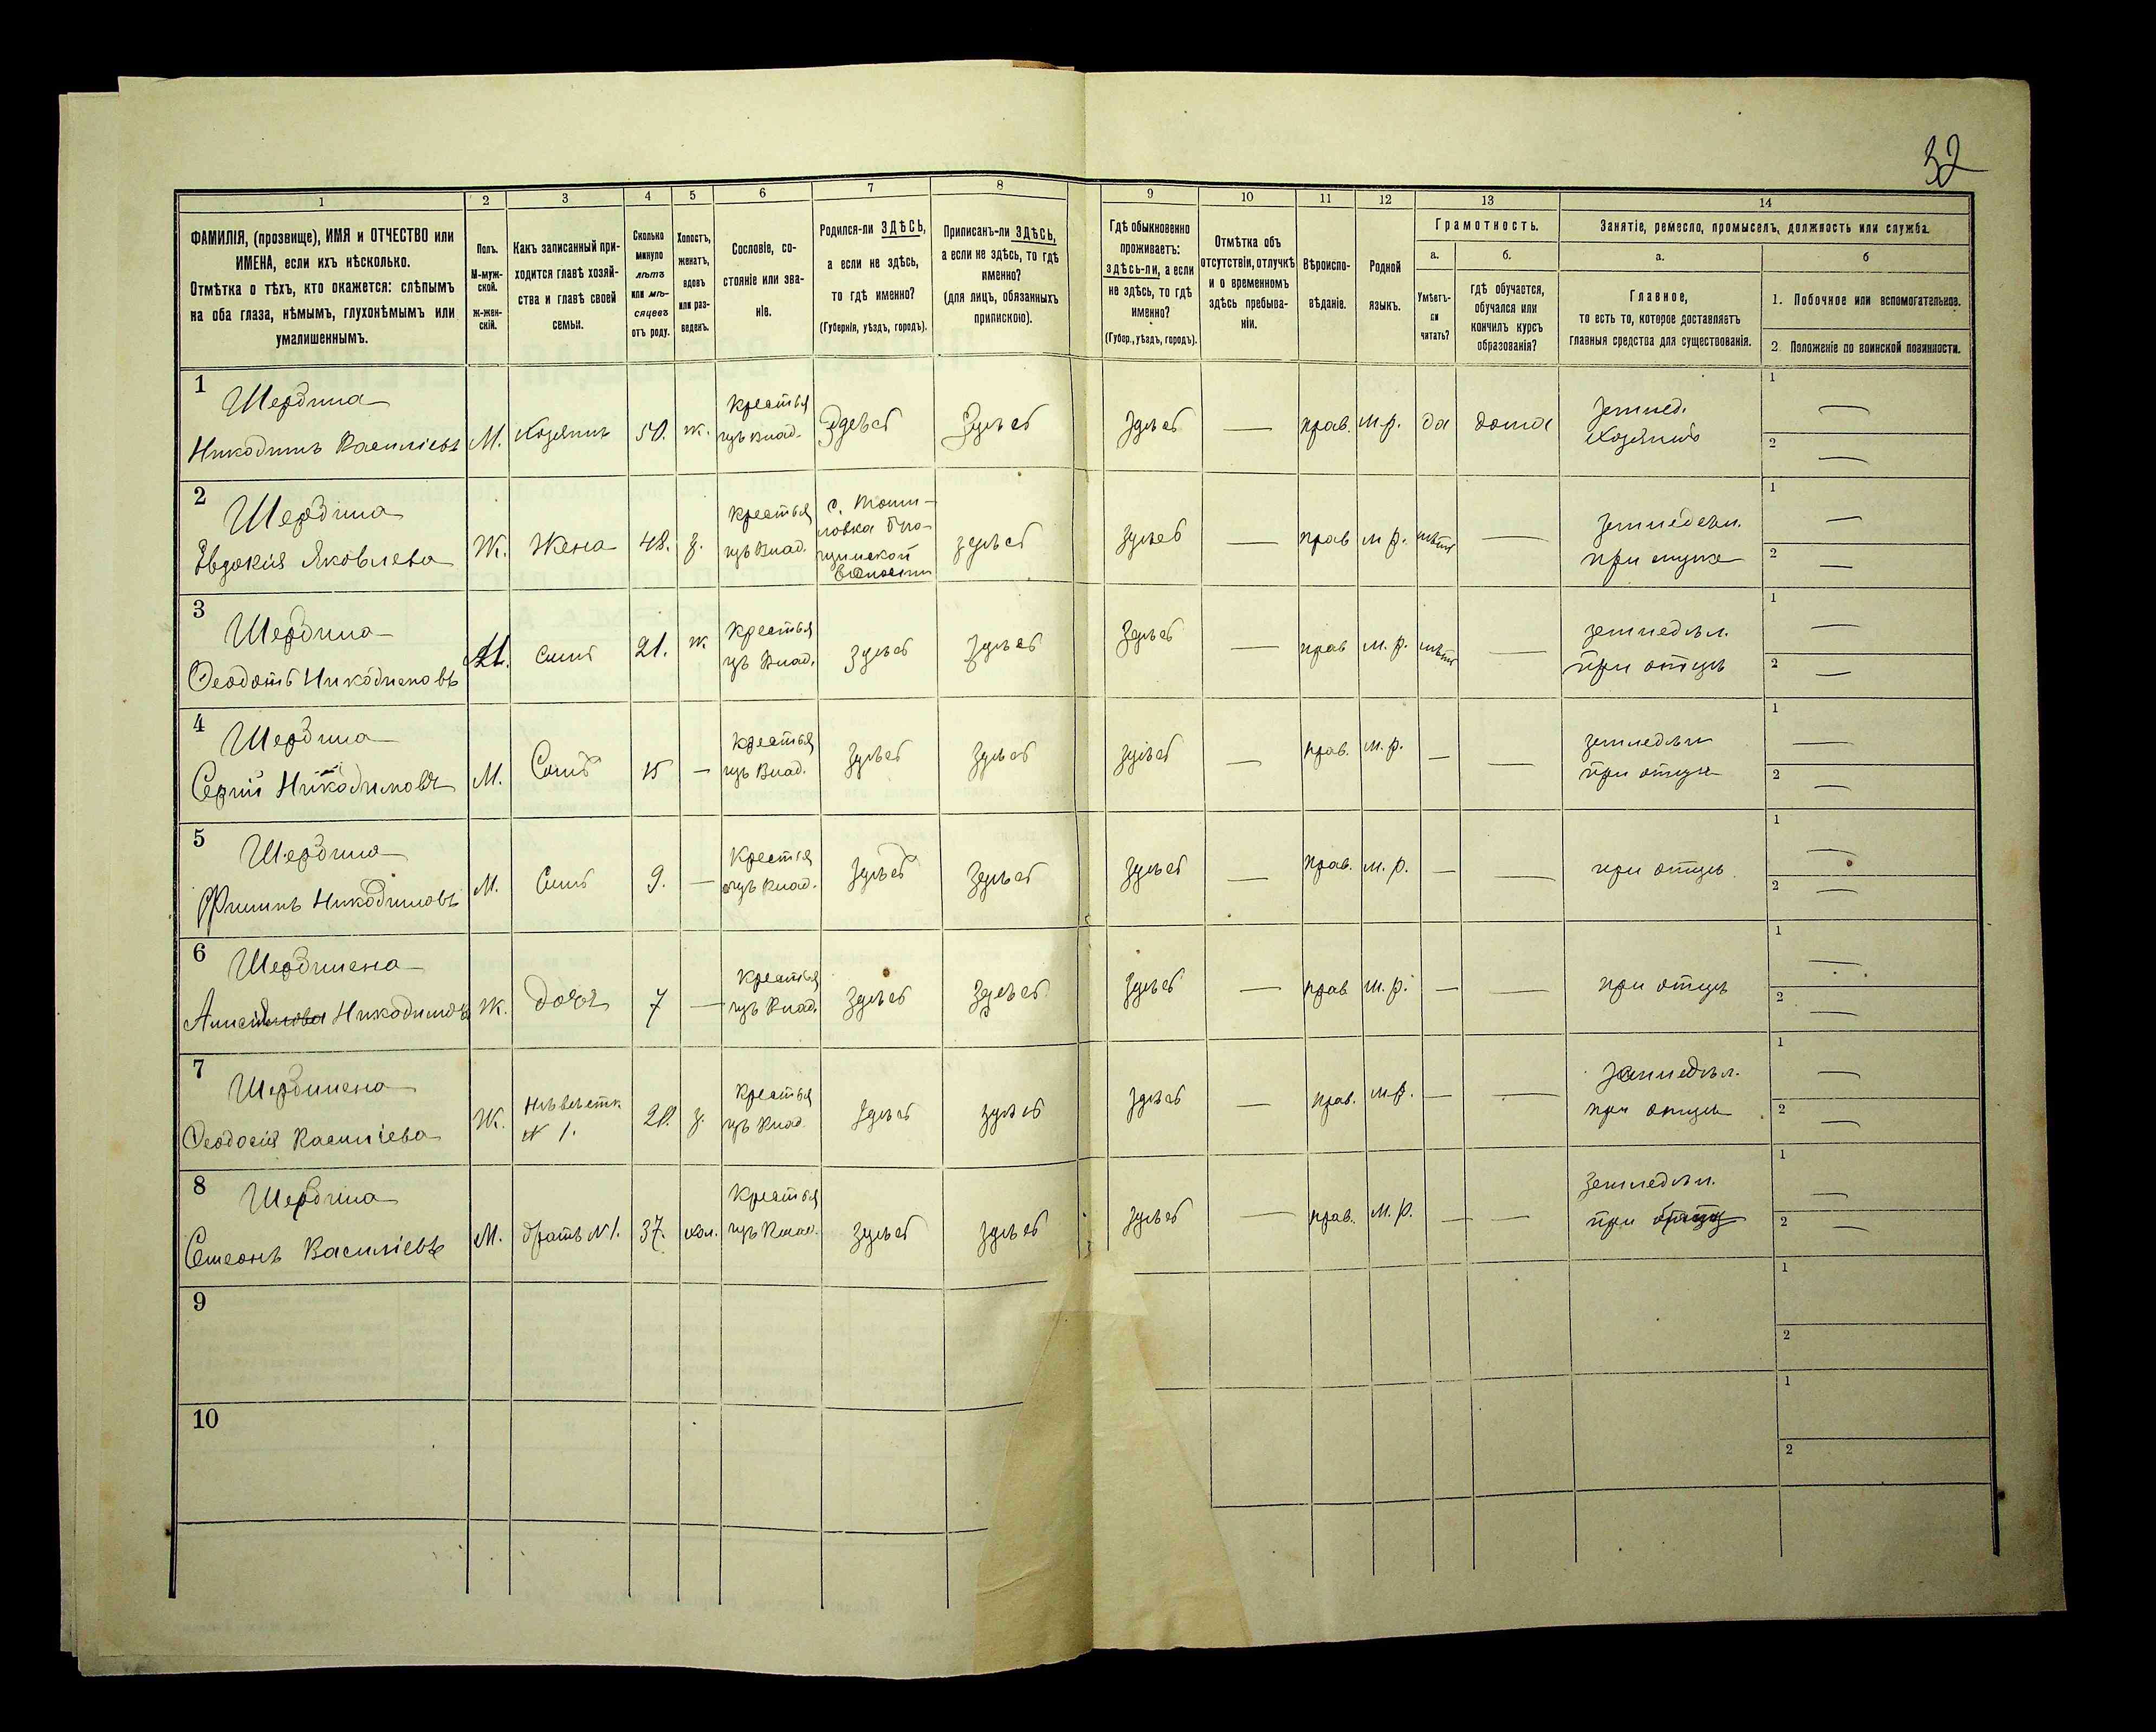 32
1
2
3
4
5
6
7
8
9
10
11
12
13
14
ФАМИЛІЯ, (прозвище), ИМЯ и ОТЧЕСТВО или
ИМЕНА, если ихъ нѣсколько.
Отмѣтка о тѣхъ, кто окажется: слѣпымъ
на оба глаза, нѣмымъ, глухонѣмымъ или
умалишеннымъ.
Полъ.
М-муж-
ской.
ж-жен-
скій.
Какъ записанный при-
ходится главѣ хозяй-
ства и главѣ своей
семьи.
Сколько
минуло
лѣтъ
или мѣ-
сяцевъ
отъ роду.
Холостъ,
женатъ,
вдовъ
или раз-
веденъ.
Сословіе, со-
стояніе или зва-
ніе.
Родился-ли ЗДѢСЬ,
а если не здѣсь,
то гдѣ именно?
(Губернія, уѣздъ, городъ).
Приписанъ-ли ЗДѢСЬ,
а если не здѣсь, то гдѣ
именно?
(для лицъ, обязанныхъ
припискою).
Гдѣ обыкновенно
проживаетъ:
здѣсь-ли, а если
не здѣсь, то гдѣ
именно?
(Губер., уѣздъ, городъ).
Отмѣтка объ
отсутствіи, отлучкѣ
и о временномъ
здѣсь пребыва-
ніи.
Вѣроиспо-
вѣданіе.
Родной
языкъ.
Грамотность.
а.
Умѣетъ-
ли
читать?
б.
гдѣ обучается,
обучался или
кончилъ курсъ
образованія?
Занятіе, ремесло, промыселъ, должность или служба.
а.
Главное,
то есть то, которое доставляетъ
главныя средства для существованія.
б
1. Побочное или вспомогательное.
2. Положеніе по воинской повинности.
1
Никодимъ Василіевъ
М.
Хозяинъ
50.
ж.
Крестья
Здѣсь
Здѣсь
Здѣсь
—
прав.
м.р.
да
дома
землед.
хозяинъ
1 —
2 —
2
Евдокія Яковлева
Ж.
Жена
48.
з.
Крестья
волости
здѣсь
здѣсь
—
прав
м.р.
нѣтъ
—
земледѣл.
при мужѣ
1 —
2 —
3
Ѳеодотъ Никодимовъ
М.
сынъ
21.
ж.
Крестья
здѣсь
здѣсь
Здѣсь
—
прав
м.р.
нѣтъ
—
земледѣл.
при отцѣ
1 —
2 —
4
Сергій Никодимовъ
М.
Сынъ
15
—
Крестья
здѣсь
здѣсь
здѣсь
—
прав.
м.р.
—
—
земледѣл
при отцѣ
1 —
2 —
5
Филипъ Никодимовъ
М.
Сынъ
9.
—
Крестья
здѣсь
здѣсь
здѣсь
—
прав.
м.р.
—
—
при отцѣ
1 —
2 —
6
Ж.
дочь
7
—
Крестья
здѣсь
здѣсь
здѣсь
—
прав
м.р.
—
—
при отцѣ
1 —
2 —
7
Ѳеодосія Василіева
Ж.
Нѣвѣстк.
№ 1.
20.
з.
Крестья
здѣсь
здѣсь
здѣсь
—
прав.
м.р.
—
—
земледѣл.
при отцѣ
1 —
2 —
8
Семеонъ Василіевъ
М.
братъ №1.
37.
хол.
Крестья
здѣсь
здѣсь
здѣсь
—
прав.
м.р.
—
—
земледѣл.
при
1 —
2 —
9
1
2
10
1
2